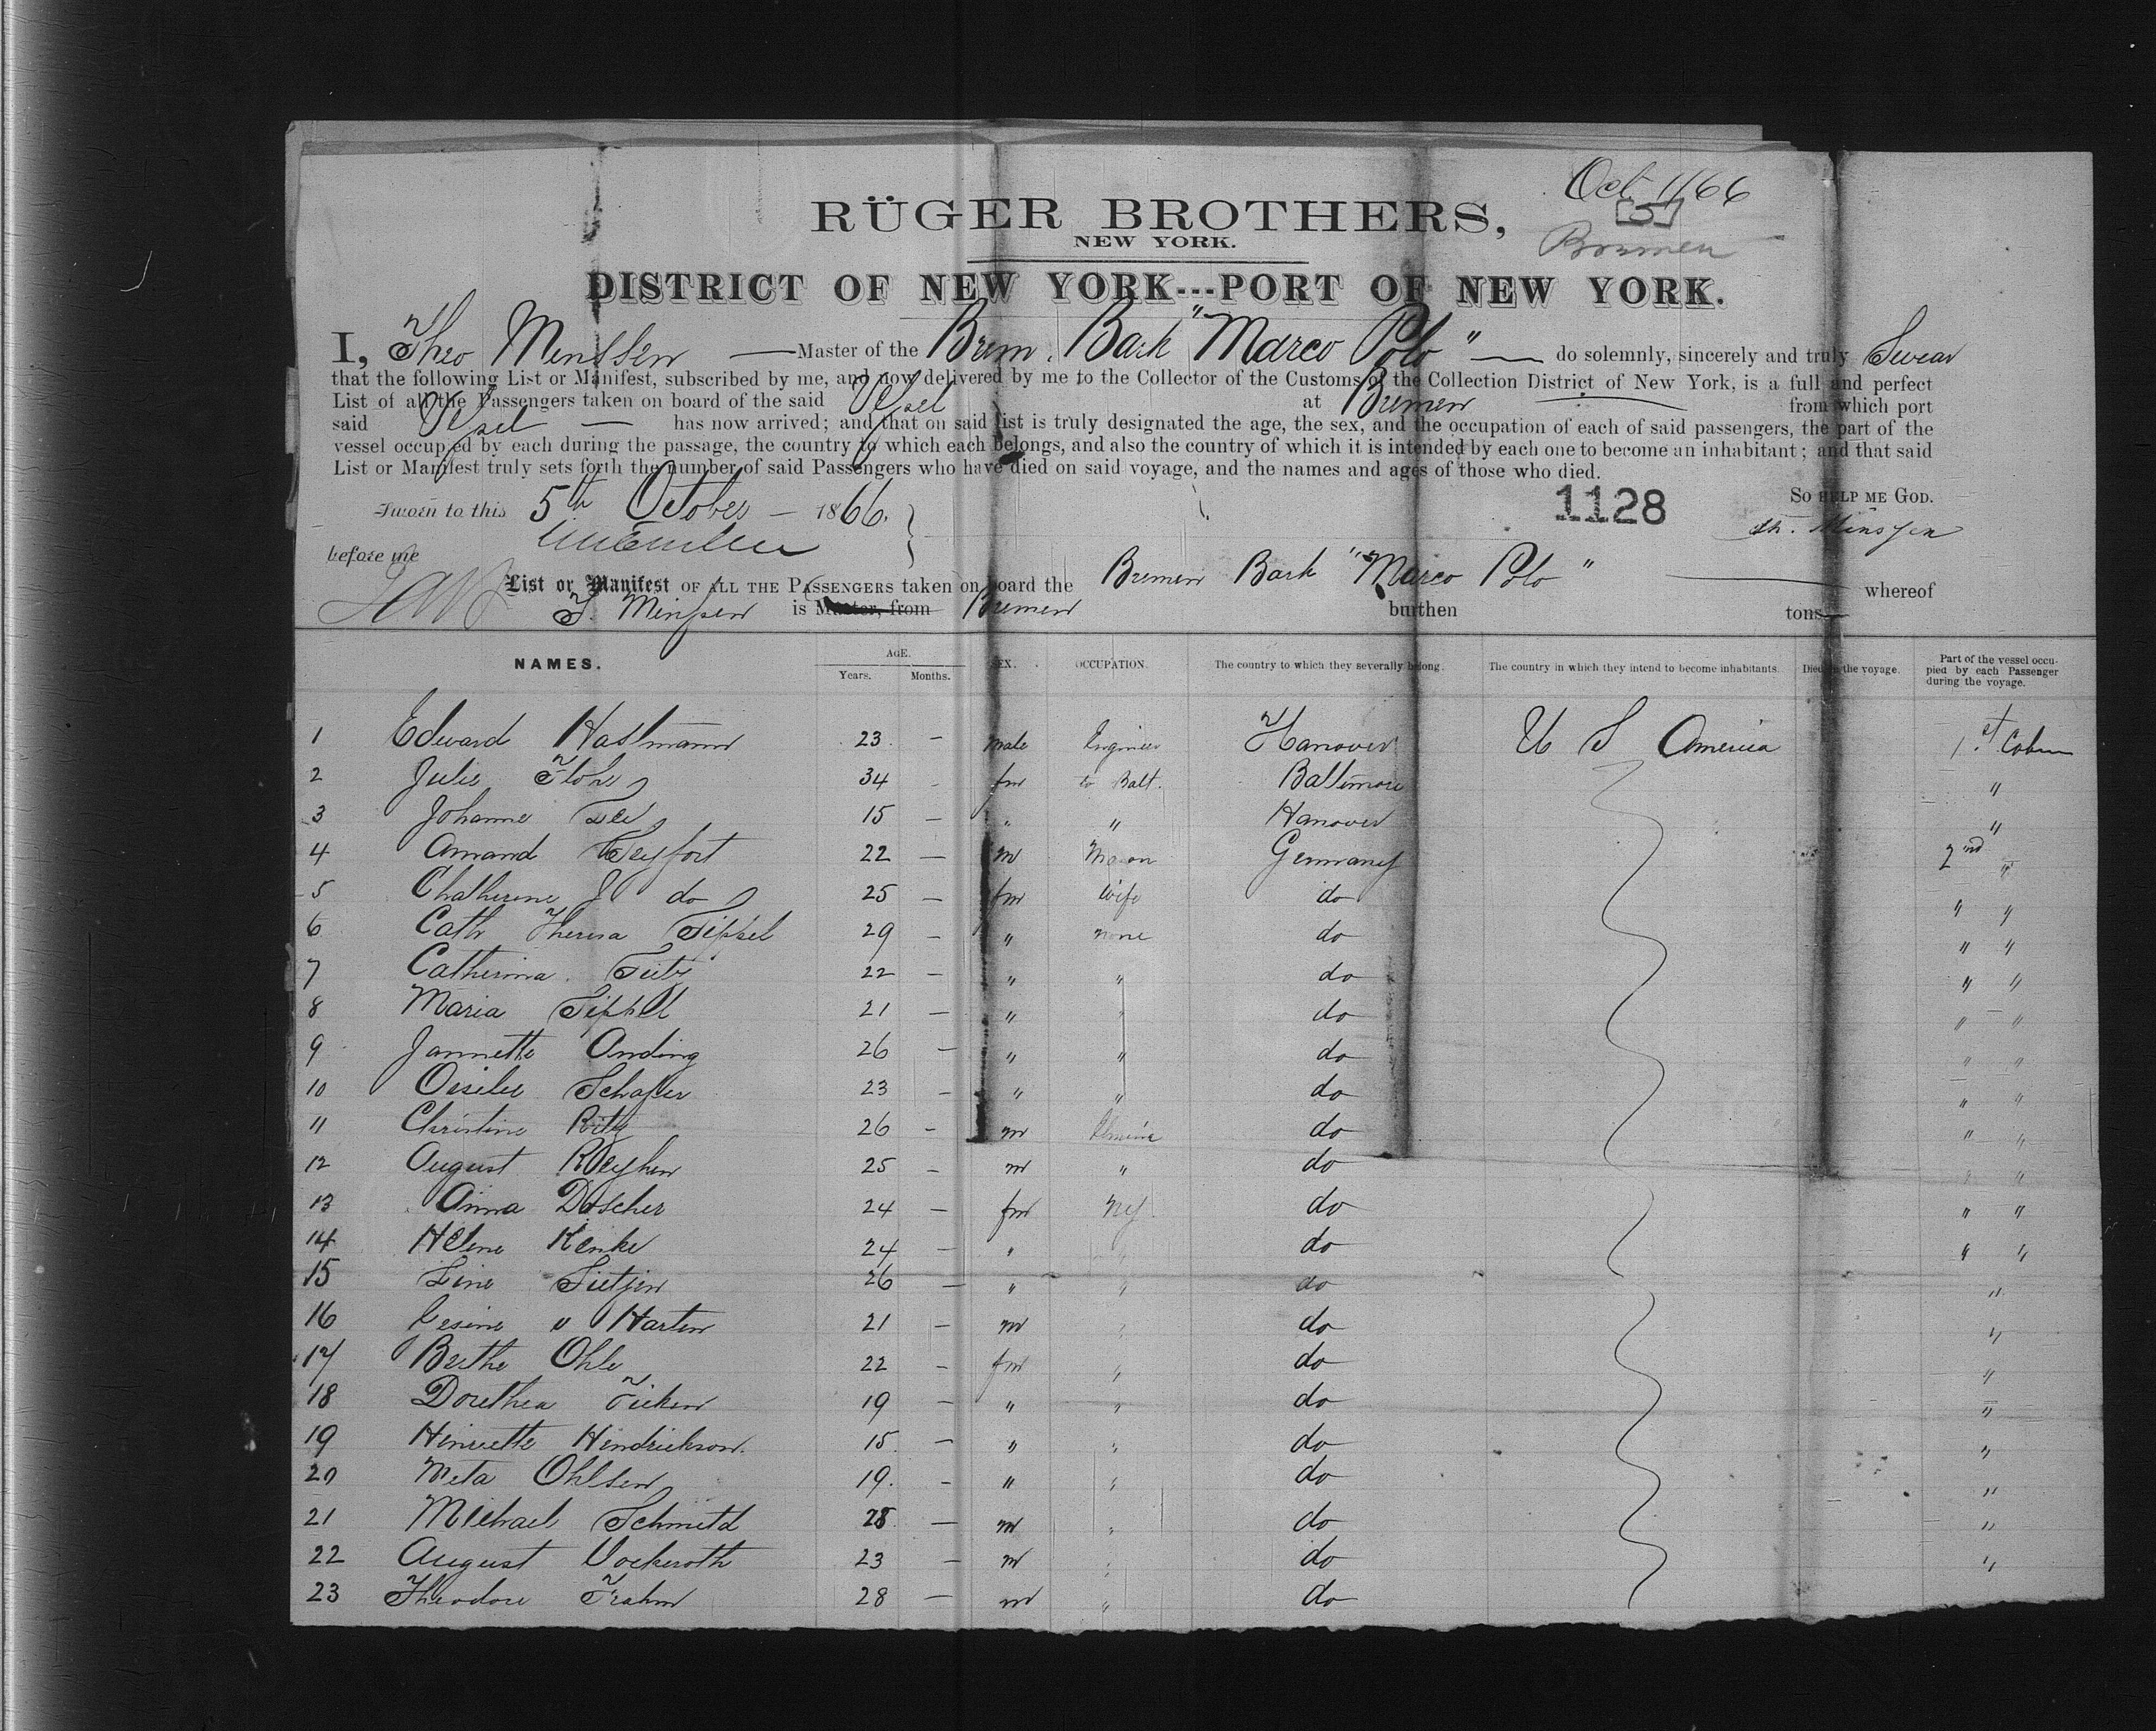 Oct 1/66
5
Bremen
RÜGER BROTHERS,
NEW YORK.
DISTRICT OF NEW YORK---PORT OF NEW YORK.
I, Theo Menssen — Master of the Brem. Bark "Marco Polo" — do solemnly, sincerely and truly Swear
that the following List or Manifest, subscribed by me, and now delivered by me to the Collector of the Customs of the Collection District of New York, is a full and perfect
List of all the Passengers taken on board of the said Vessel at Bremen from which port
said Vessel — has now arrived; and that on said list is truly designated the age, the sex, and the occupation of each of said passengers, the part of the
vessel occupied by each during the passage, the country to which each belongs, and also the country of which it is intended by each one to become an inhabitant; and that said
List or Manifest truly sets forth the number of said Passengers who have died on said voyage, and the names and ages of those who died.
Sworn to this 5th October — 1866. 1128 SO HELP ME GOD.
before me
List or Manifest OF ALL THE PASSENGERS taken on board the Bremen Bark "Marco Polo" — whereof
is Master, from Bremen burthen tons
NAMES. AGE. Years. Months. SEX. OCCUPATION. The country to which they severally belong. The country in which they intend to become inhabitants. Died on the voyage. Part of the vessel occupied by each Passenger during the voyage.
1 Edward Hastmann 23 — male Engineer Hanover U S America 1st Cabin
2 Julie 34 - fm to Balt. Baltimore "
3 Johanne 15 — " " Hanover "
4 Amand 22 — m Mason Germany 2nd "
5 Chatherine do 25 — fm wife do " "
6 Cath Theresa Tippel 29 — " none do " "
7 Catherina 22 — " " do " "
8 Maria Tippel 21 — " " do " "
9 Jannette Anding 26 — " " do " "
10 Schafer 23 — " " do " "
11 Christine 26 - m do " "
12 August 25 - m " do " "
13 Anna Doscher 24 — fm NY. do " "
14 Helene Renke 24 — " " do " "
15 Line Tietjen 26 — " " do "
16 Gesine v Harten 21 — m " do "
17 Berthe Ohle 22 - fm " do "
18 Dorethea Ficken 19 - " " do "
19 Henriette Hendrickson. 15. — " " do "
20 Meta Ohlsen 19. - " " do "
21 Michael Schmeld 28 — m " do "
22 August Vockeroth 23 — m " do "
23 Theodore Frahm 28 — m " do